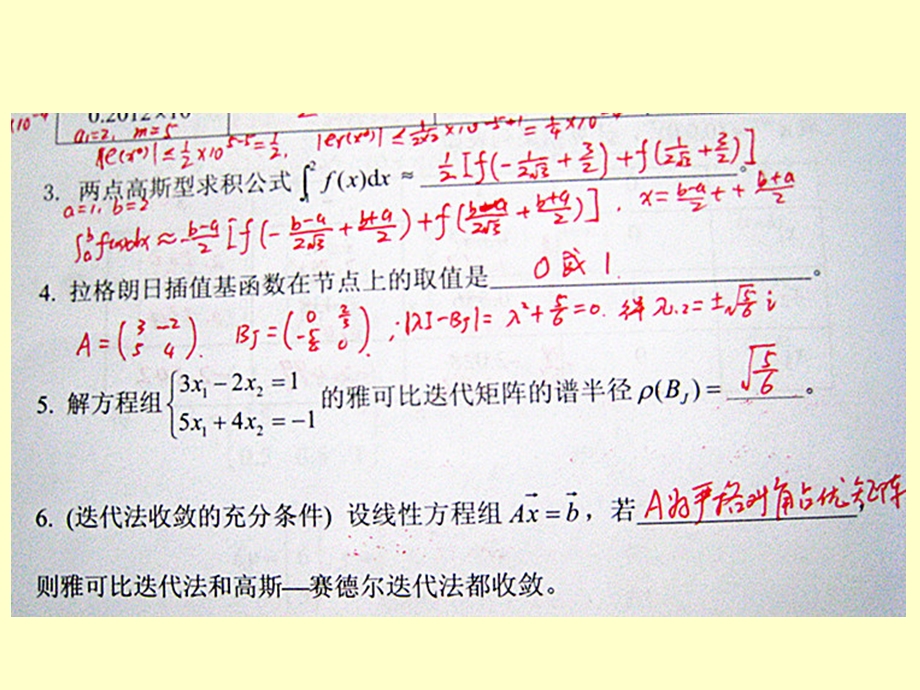 ×10⁻⁴ 0.2012×10
a₁=2, m=5
|e(x*)| ≤ ½×10⁵⁻⁵ = ½, |er(x*)| ≤ 1/(2×2)×10⁻⁵⁺¹ = ¼×10⁻⁴
3. 两点高斯型求积公式∫₁² f(x)dx ≈ ½[f(-1/(2√3)+3/2)+f(1/(2√3)+3/2)]。
a=1, b=2
∫ₐᵇ f(x)dx ≈ (b-a)/2 [f(-(b-a)/(2√3)+(b+a)/2)+f((b-a)/(2√3)+(b+a)/2)]. x=(b-a)/2 t+(b+a)/2
4. 拉格朗日插值基函数在节点上的取值是 0或1. 。
A=(3 -2; 5 4). B_J=(0 2/3; -5/4 0), |λI-B_J|=λ²+5/6=0. 得 λ₁,₂=±√(5/6) i
5. 解方程组{3x₁-2x₂=1; 5x₁+4x₂=-1 的雅可比迭代矩阵的谱半径 ρ(B_J)= √(5/6) 。
6. (迭代法收敛的充分条件) 设线性方程组 Ax⃗=b⃗，若 A为严格对角占优矩阵，
则雅可比迭代法和高斯—赛德尔迭代法都收敛。